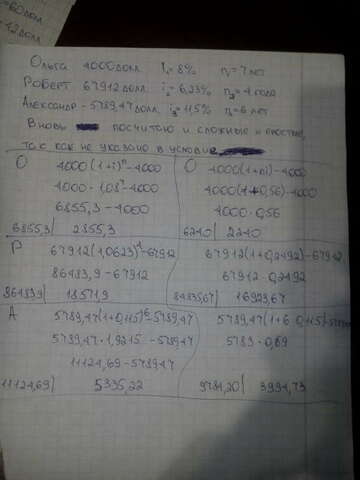 60 долл
12 долл.
Ольга 4000 долл. i₁=8% n₁=7 лет
Роберт 67912 долл. i₂=6,23% n₂=4 года
Александр - 5789,47 долл. i₃=11,5% n₃=6 лет
Вновь посчитаю и сложные и простые,
так как не указано в условии
О О
4000(1+i)ⁿ-4000 4000(1+ni)-4000
4000·1,08⁷-4000 4000(1+0,56)-4000
6855,3-4000 4000·0,56
6855,3| 2855,3 6240| 2240
Р 67912(1,0623)⁴-67912 67912(1+0,2492)-67912
86483,9-67912 67912·0,2492
86483,9| 18571,9 84835,67| 16923,67
А 5789,47(1+0,115)⁶-5789,47 5789,47(1+6·0,115)
5789,47·1,9215-5789,47 5783·0,69
11124,69-5789,47
11124,69| 5335,22 9784,20| 3994,73